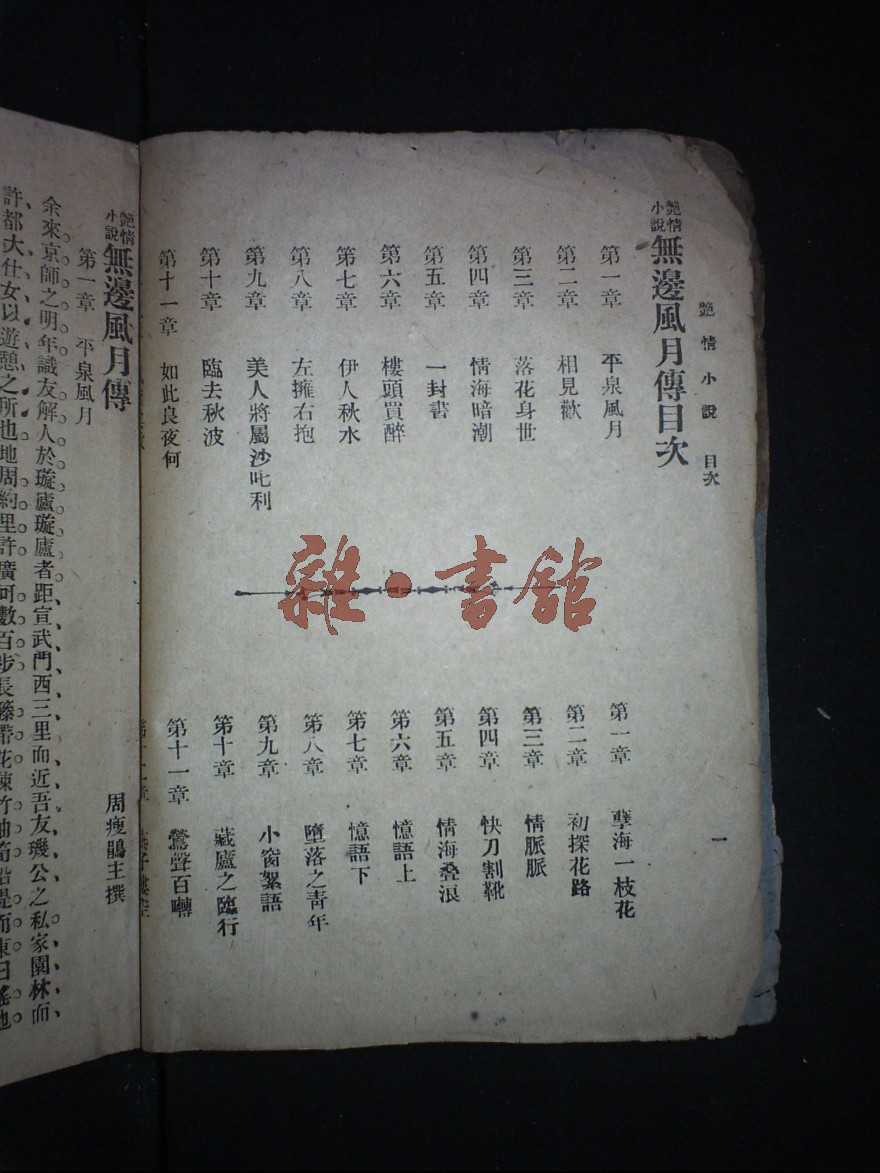 艷情小說 目次
一
艷情小說 無邊風月傳目次
第一章 平泉風月
第二章 相見歡
第三章 落花身世
第四章 情海暗潮
第五章 一封書
第六章 樓頭買醉
第七章 伊人秋水
第八章 左擁右抱
第九章 美人將屬沙叱利
第十章 臨去秋波
第十一章 如此良夜何
第一章 孽海一枝花
第二章 初探花路
第三章 情脈脈
第四章 快刀割靴
第五章 情海叠浪
第六章 憶語上
第七章 憶語下
第八章 墮落之靑年
第九章 小窗絮語
第十章 藏廬之臨行
第十一章 鶯聲百囀
雜·書舘
艷情小說 無邊風月傳
周瘦鵑主撰
第一章 平泉風月
余來京師之明年識友解人於璇廬璇廬者距宣武門西三里而近吾友璣公之私家園林而
許都大仕女以遊憩之所也地周約里許廣可數百步長籐帶花